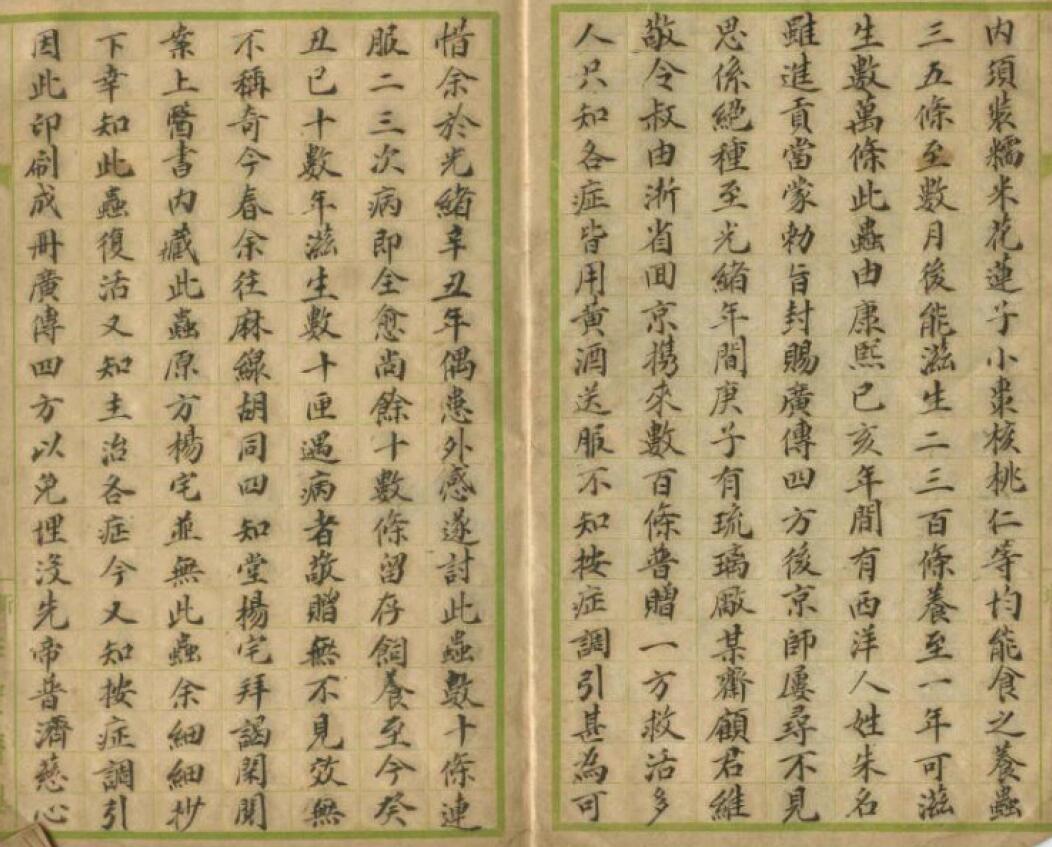 內須裝糯米花蓮子小棗核桃仁等均能食之養蟲
三五條至數月後能滋生二三百條養至一年可滋
生數萬條此蟲由康熙己亥年間有西洋人姓朱名
雖進貢當蒙勅旨封賜廣傳四方後京師屢尋不見
思係絕種至光緒年間庚子有琉璃厰某齋顧君維
敬令叔由浙省回京携來數百條普贈一方救活多
人只知各症皆用黃酒送服不知按症調引甚為可
惜余於光緒辛丑年偶患外感遂討此蟲數十條連
服二三次病即全愈尚餘十數條留存飼養至今癸
丑已十數年滋生數十匣遇病者敬贈無不見效無
不稱奇今春余往麻線胡同四知堂楊宅拜謁閑閱
案上醫書內藏此蟲原方楊宅並無此蟲余細細抄
下幸知此蟲復活又知主治各症今又知按症調引
因此印刷成冊廣傳四方以免埋沒先帝普濟慈心